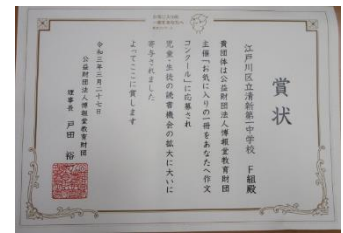 賞状
江戸川区立清新第一中学校 F組殿
貴団体は公益財団法人博報堂教育財団
主催「お気に入りの一冊をあなたへ作文
コンクール」に応募され
児童・生徒の読書機会の拡大に大いに
寄与されました
よってここに賞します
令和三年三月二十七日
公益財団法人博報堂教育財団
理事長 戸田 裕